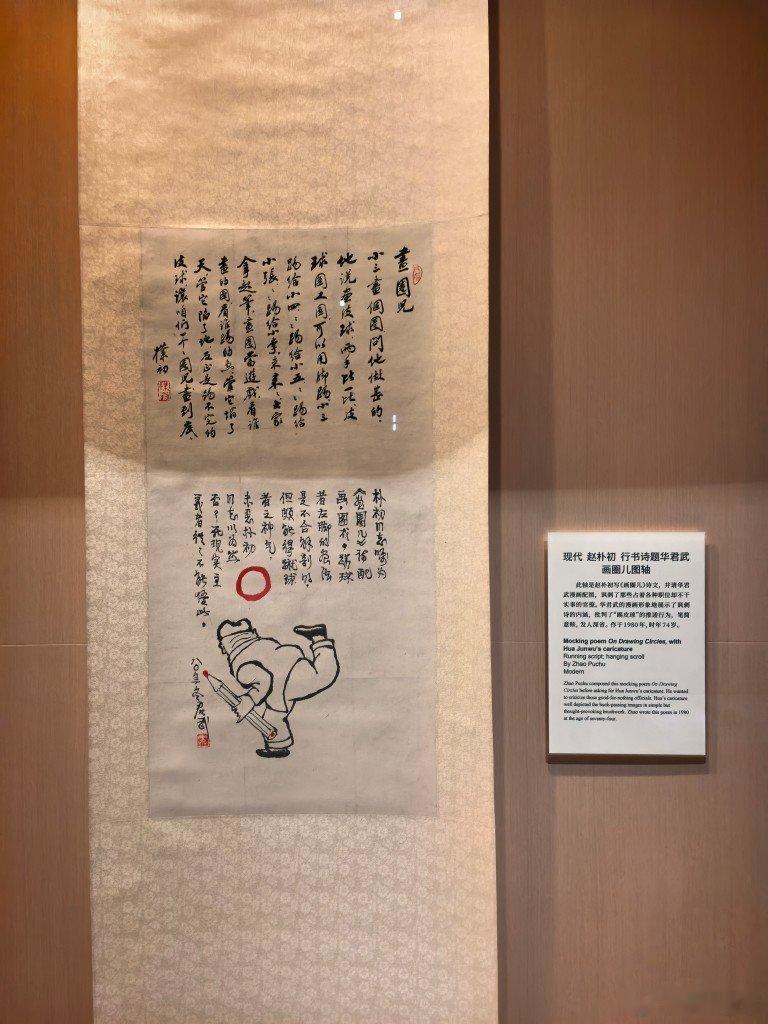 畫圈兒
小三畫個圈,問他做甚的,
他说画皮球,两手比一比,皮
球圆又圆,可以用脚踢,小三
踢给小四,々踢给小五,々踢给
小張,々踢给小李,来来々,大家
拿起筆,畫圈當遊戲,看誰
畫的圈,看誰踢的急,管它塌了
天,管它陷了地,反正是踢不完的
皮球,讓咱们一个々圈兒畫到底。
樸初
朴初同志嘱为
《画圈儿》诗配
画,图成,踢球
者左脚的画法
是不合解剖的,
但颇能得踢球
者之神气,
未悉朴初
同志以为然
否?死现实主
義者
八〇年冬君武
现代 赵朴初 行书诗题华君武
画圈儿图轴
此轴是赵朴初写《画圈儿》诗文,并请华君
武漫画配图,讽刺了那些占着各种职位却不干
实事的官僚。华君武的漫画形象地展示了讽刺
诗的内涵,批判了“踢皮球”的推诿行为,笔简
意赅,发人深省。作于1980年,时年74岁。
Mocking poem On Drawing Circles, with
Hua Junwu's caricature
Running script; hanging scroll
By Zhao Puchu
Modern
Zhao Puchu composed this mocking poem On Drawing
Circles before asking for Hua Junwu's caricature. He wanted
to criticize those good-for-nothing officials. Hua's caricature
well depicted the buck-passing images in simple but
thought-provoking brushwork. Zhao wrote this poem in 1980
at the age of seventy-four.